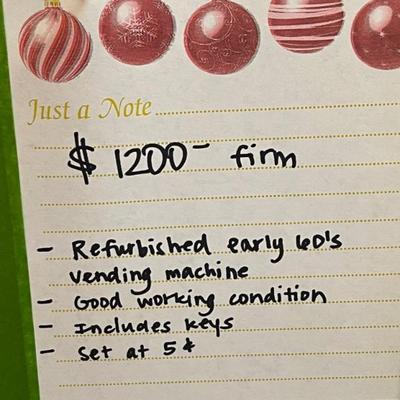 Just a Note
$ 1200- firm
- Refurbished early 60's
vending machine
- Good working condition
- Includes keys
- Set at 5¢